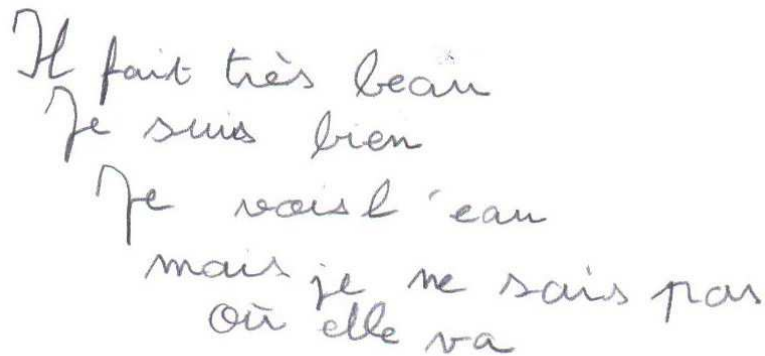 Il fait très beau
Je suis bien
Je vois l'eau
mais je ne sais pas
où elle va